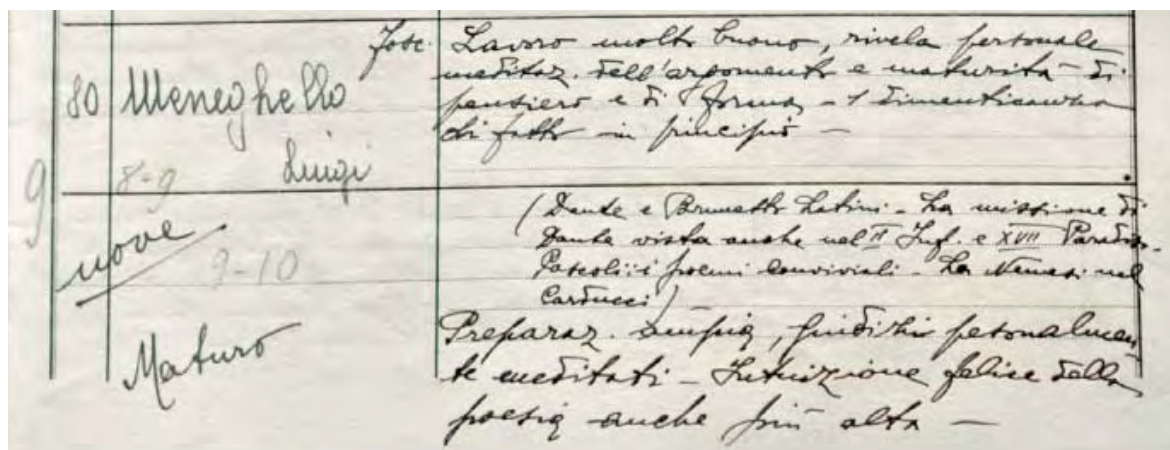 80 Meneghello
Luigi
9
8-9
nove
9-10
Maturo
Fosc. Lavoro molto buono, rivela personale
meditaz. dell'argomento e maturità di
pensiero e di forma - 1 dimenticanza
di fatto in principio -
(Dante e Brunetto Latini - La missione di
Dante vista anche nel II Inf. e XVII Paradiso.
Pascoli: i poemi conviviali - La Nemesi nel
Carducci)
Preparaz. ampia, giudizi personalmen
te meditati - Intuizione felice della
poesia anche più alta -